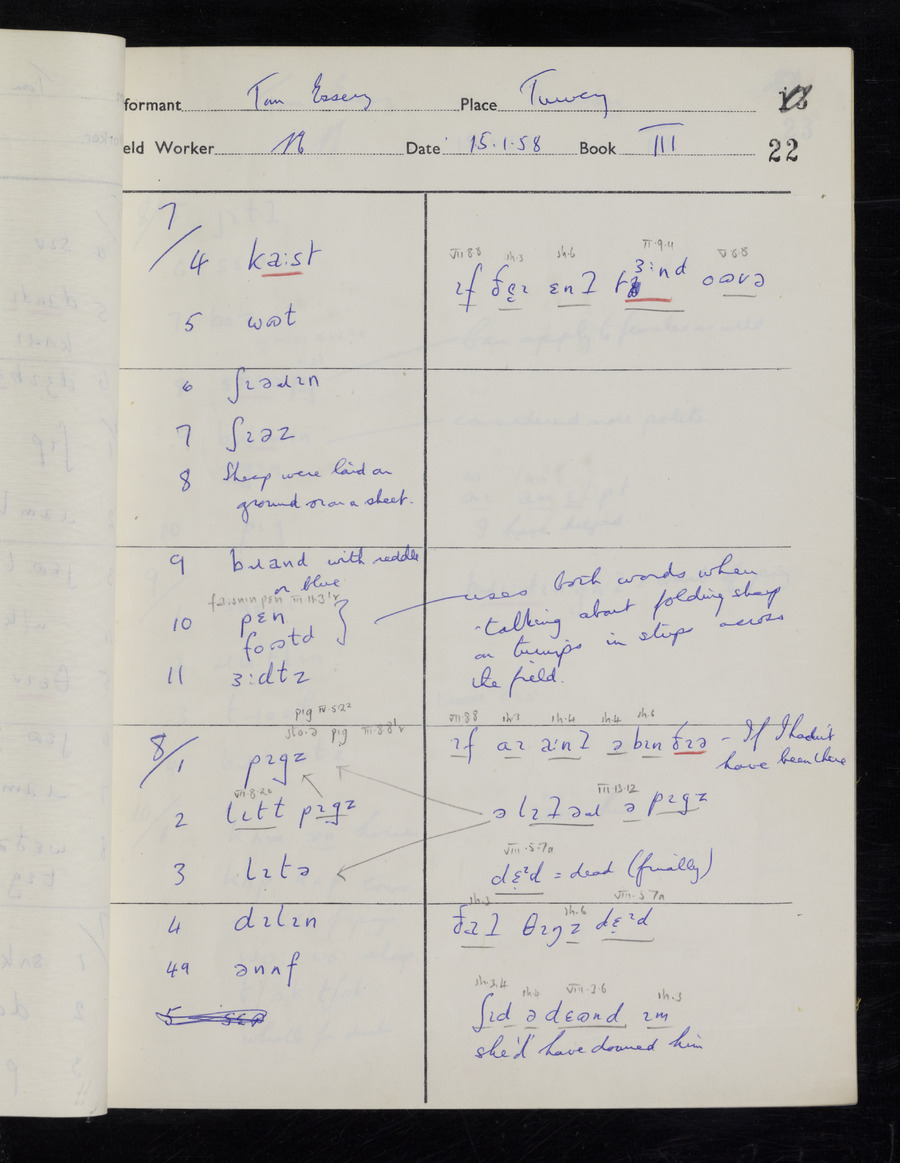 formant Tom Essery Place Turvey 22
eld Worker Date 15.1.58 Book III
7/4 ka:st
5 wɷt
6 ʃɪədɪn
7 ʃɪəz
8 Sheep were laid on
ground or on a sheet.
9 bɹand with reddle
or blue
10 pɛn
11 ɜ:dɫz
VII 8.8 sh.3 sh.6 V 6.8
ɪf
uses both words when
talking about folding sheep
on turnips in strips across
the field.
pig
8/1 pɪgz
2 lɪtɫ pɪgz
3 lɪtə
4 dɪlɪn
4a
VII 8.8 sh.3 sh.4 sh.4 sh.6
ɪf ə bɪn ðɪə – If I hadn't
have been there
III.13.12
ə pɪgz
VIII.5.7a
dɛ̝ɪd = dead (finally)
sh.3 sh.6 VIII.5.7a
θɪŋz dɛ̝ɪd
sh.3.4 sh.4 VIII.3.6 sh.3
ʃɪd ə dɛɷnd ɪm
she'd have downed him